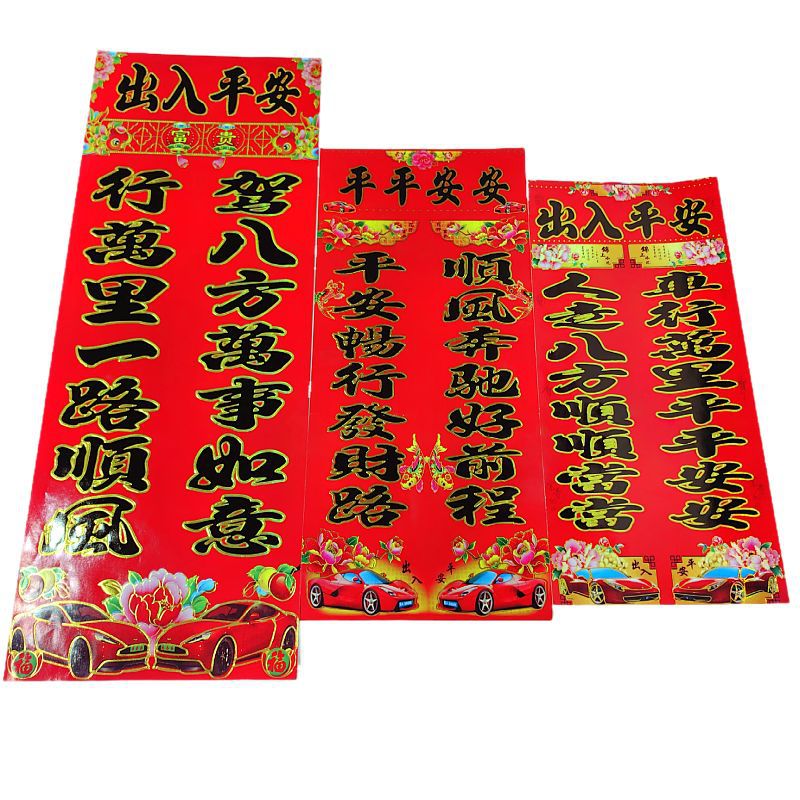 出入平安
富贵
驾八方萬事如意
行萬里一路順風
福
福
平平安安
順風奔驰好前程
平安暢行發財路
出入
平安
出入平安
錦上
錦上
車行萬里平平安安
人走八方順順當當
出入
平安